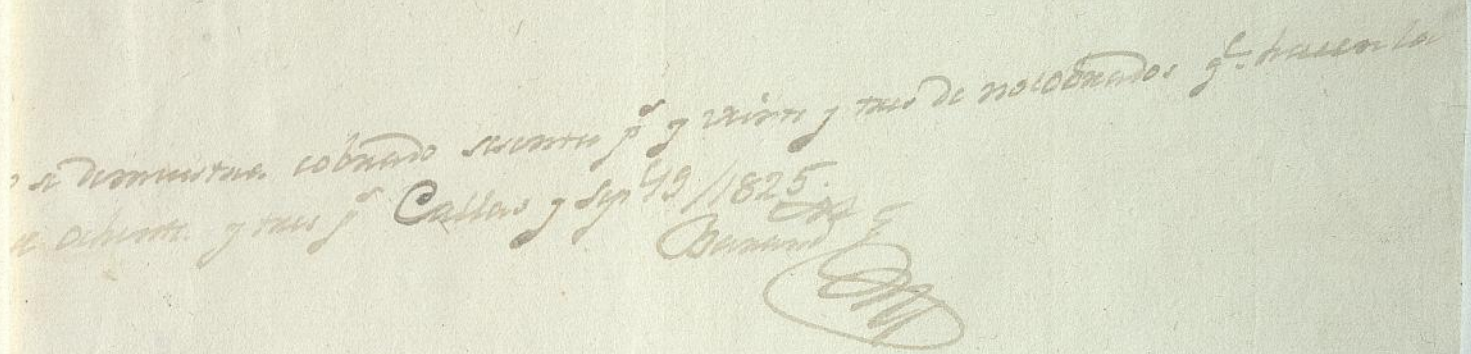 se demuestra cobrado sesenta ps. y veinte y tres de no cobrados qe. hacen la
de ochenta y tres ps. Callao y Sepe. 13/1825.